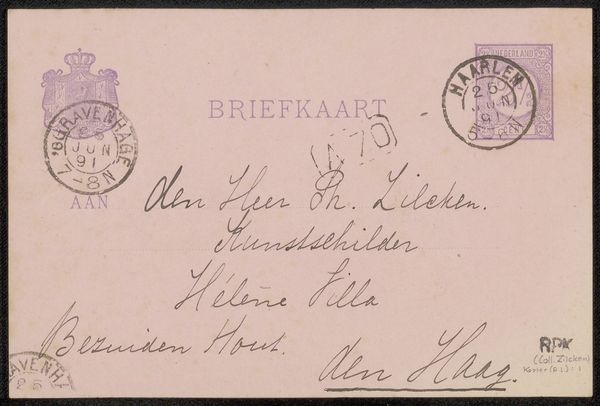 NEDERLAND
HAARLEM
26
JUN
91
BRIEFKAART
'SGRAVENHAGE
JUN
91
7-8N
N 70
AAN
den Heer Ph. Zilcken.
Kunstschilder
Hélène Villa
Bezuiden Hout.
den Haag.
RPK
(Coll. Zilcken)
AVENH
26